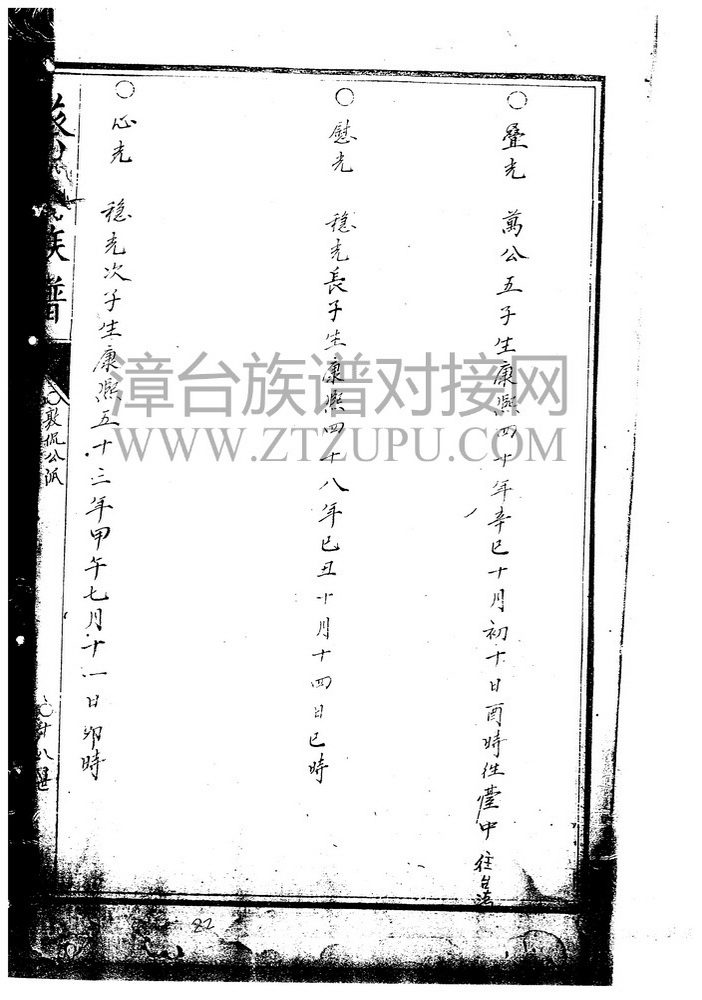 ○疊光 萬公五子生康熙四十年辛巳十月初十日酉時往臺中 往台湾
○慰光 稳光長子生康熙四十八年己丑十月十四日巳時
○心光 稳光次子生康熙五十三年甲午七月十一日卯時
族譜
敦侃公派
82
漳台族谱对接网
WWW.ZTZUPU.COM